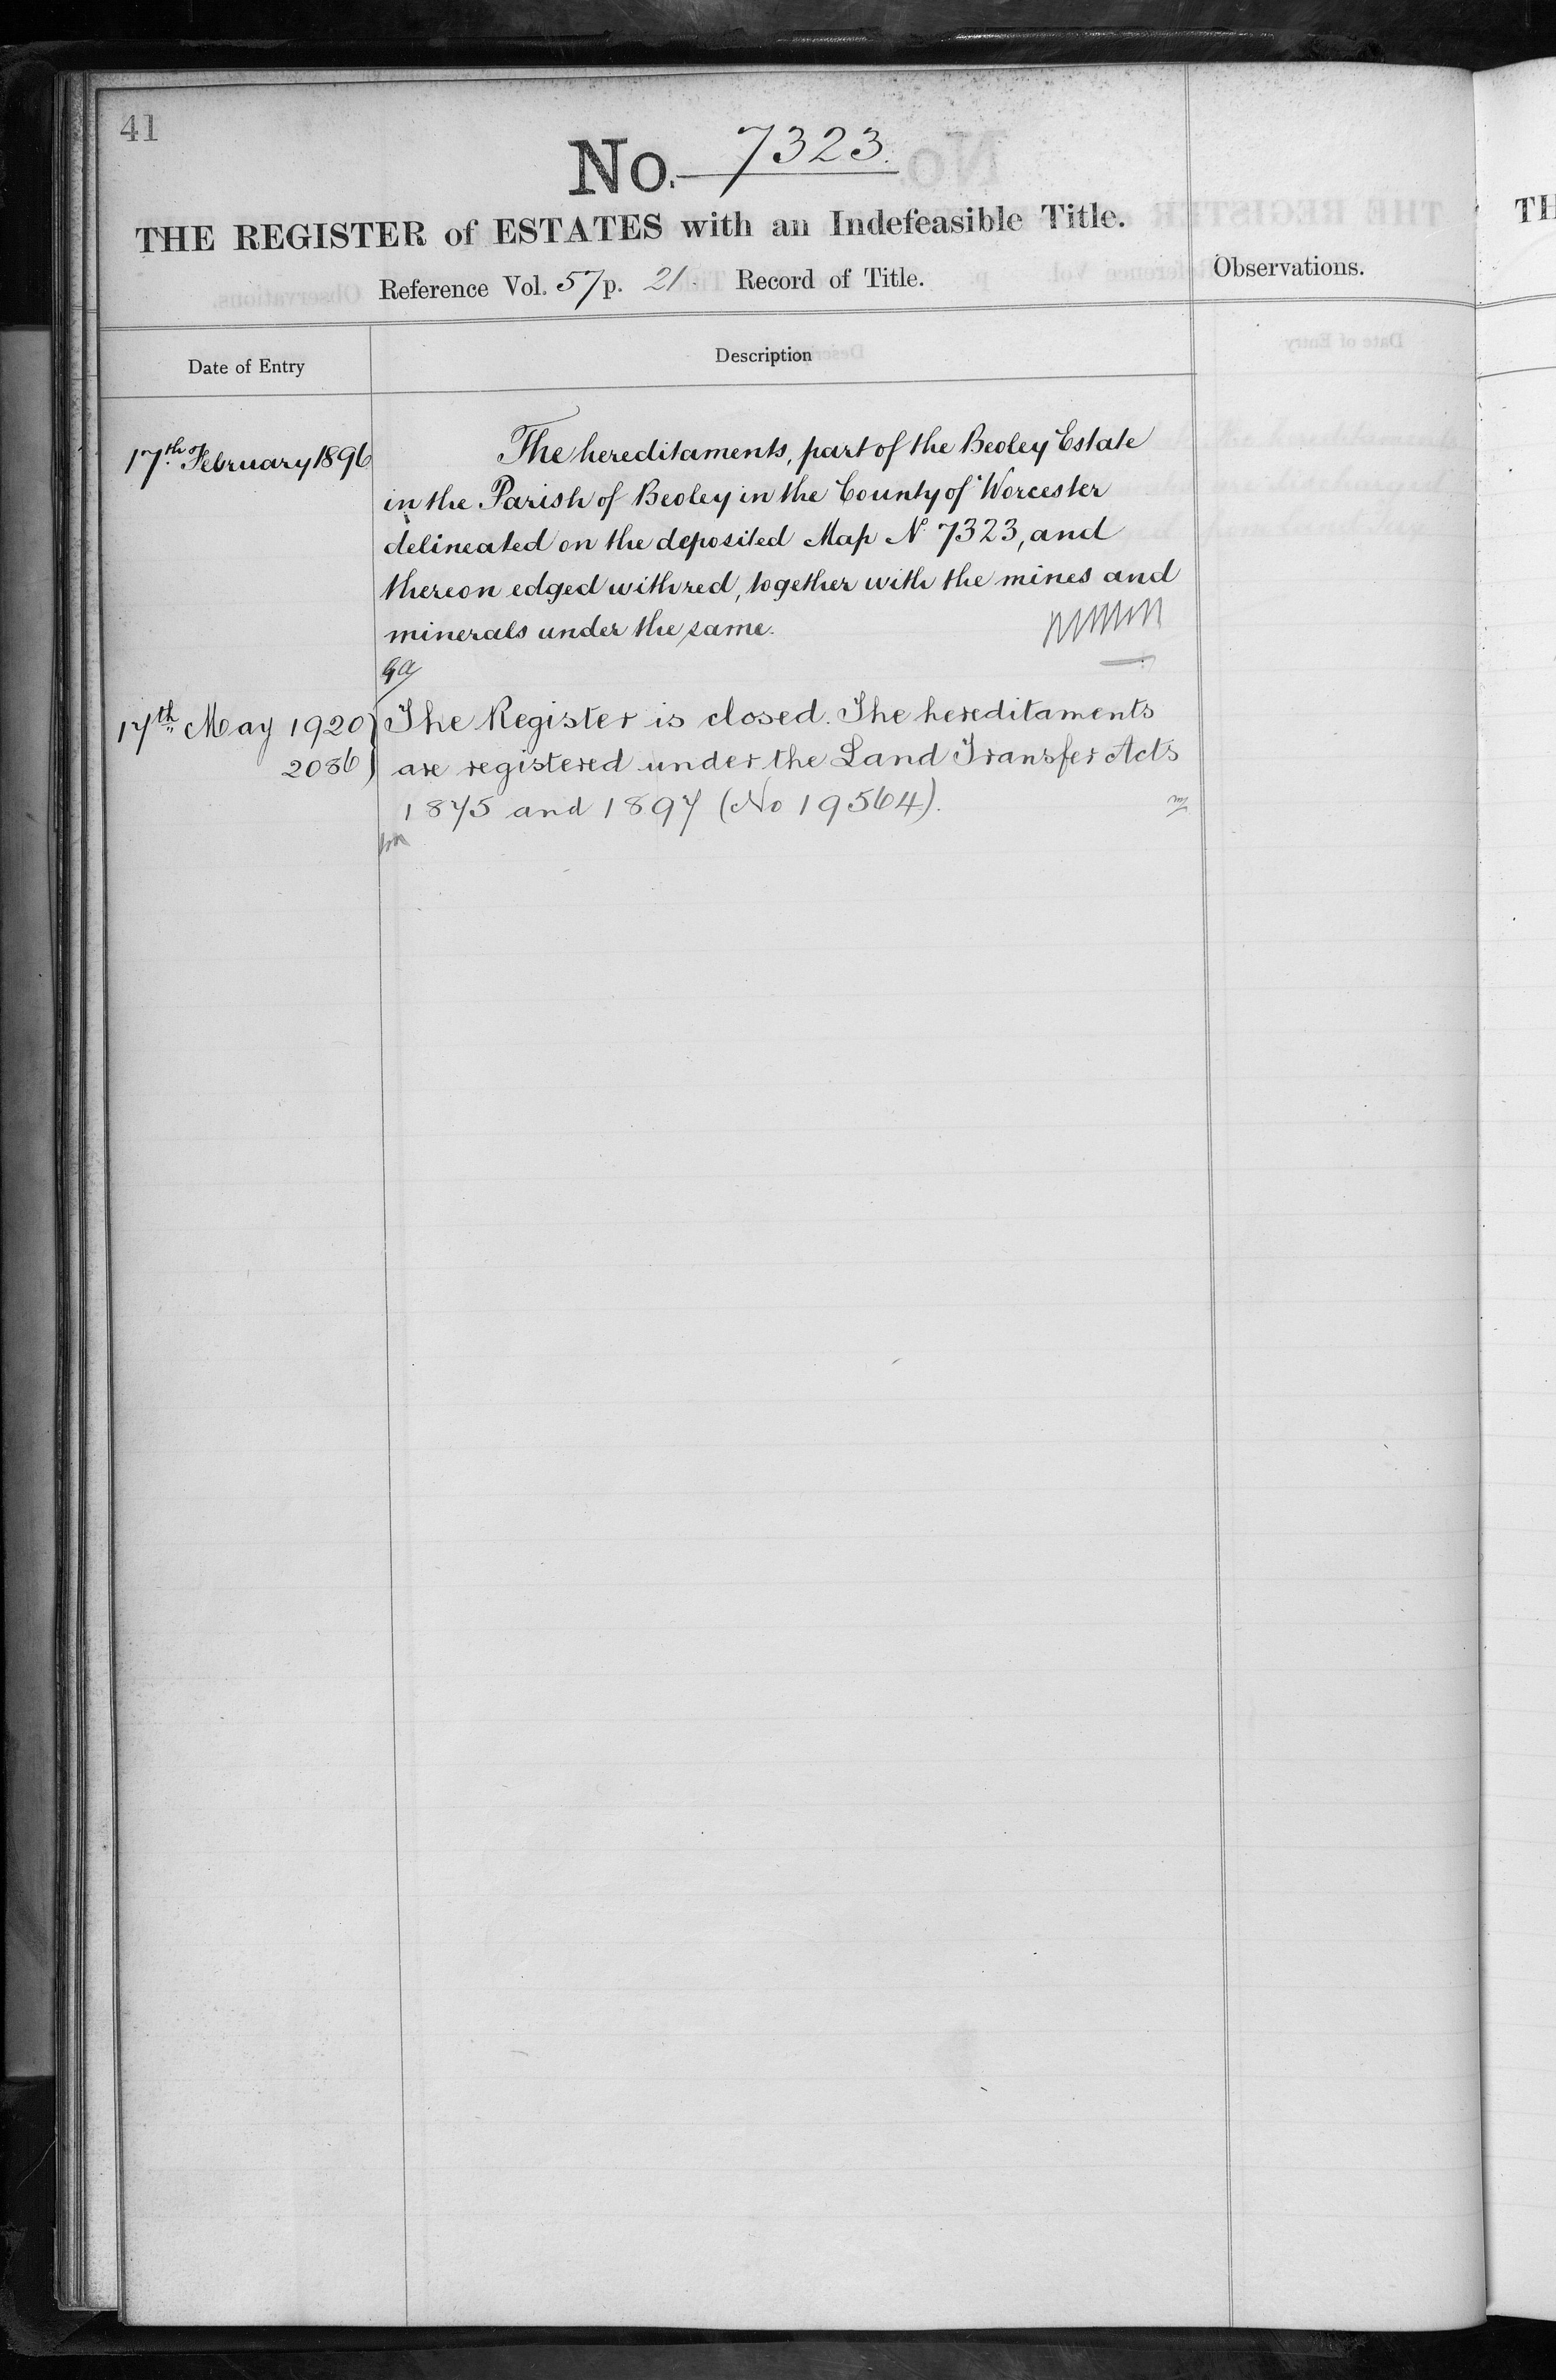 41
No. 7323.
THE REGISTER of ESTATES with an Indefeasible Title.
Reference Vol. 57 p. 21. Record of Title.
Observations.
Date of Entry
Description
17th February 1896
The hereditaments, part of the Beoley Estate
in the Parish of Beoley in the County of Worcester
delineated on the deposited Map No 7323, and
thereon edged with red, together with the mines and
minerals under the same.
17th May 1920
2036
The Register is closed. The hereditaments
are registered under the Land Transfer Acts
1875 and 1897 (No 19564).
TH